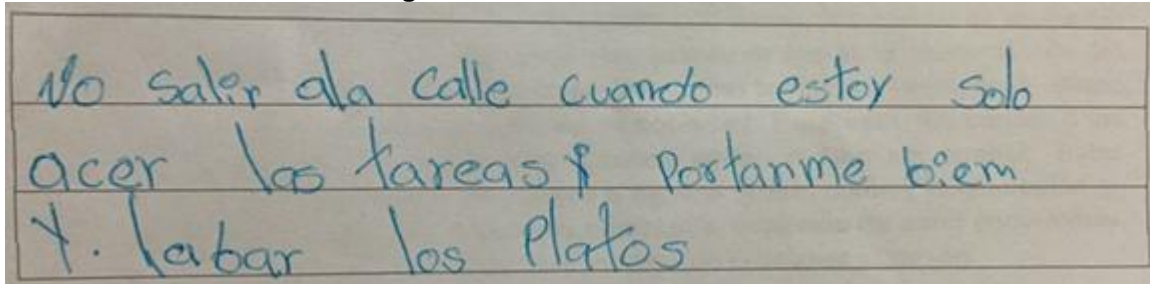 No salir ala calle cuando estoy solo
acer las tareas y portanme biem
Y. labar los platos